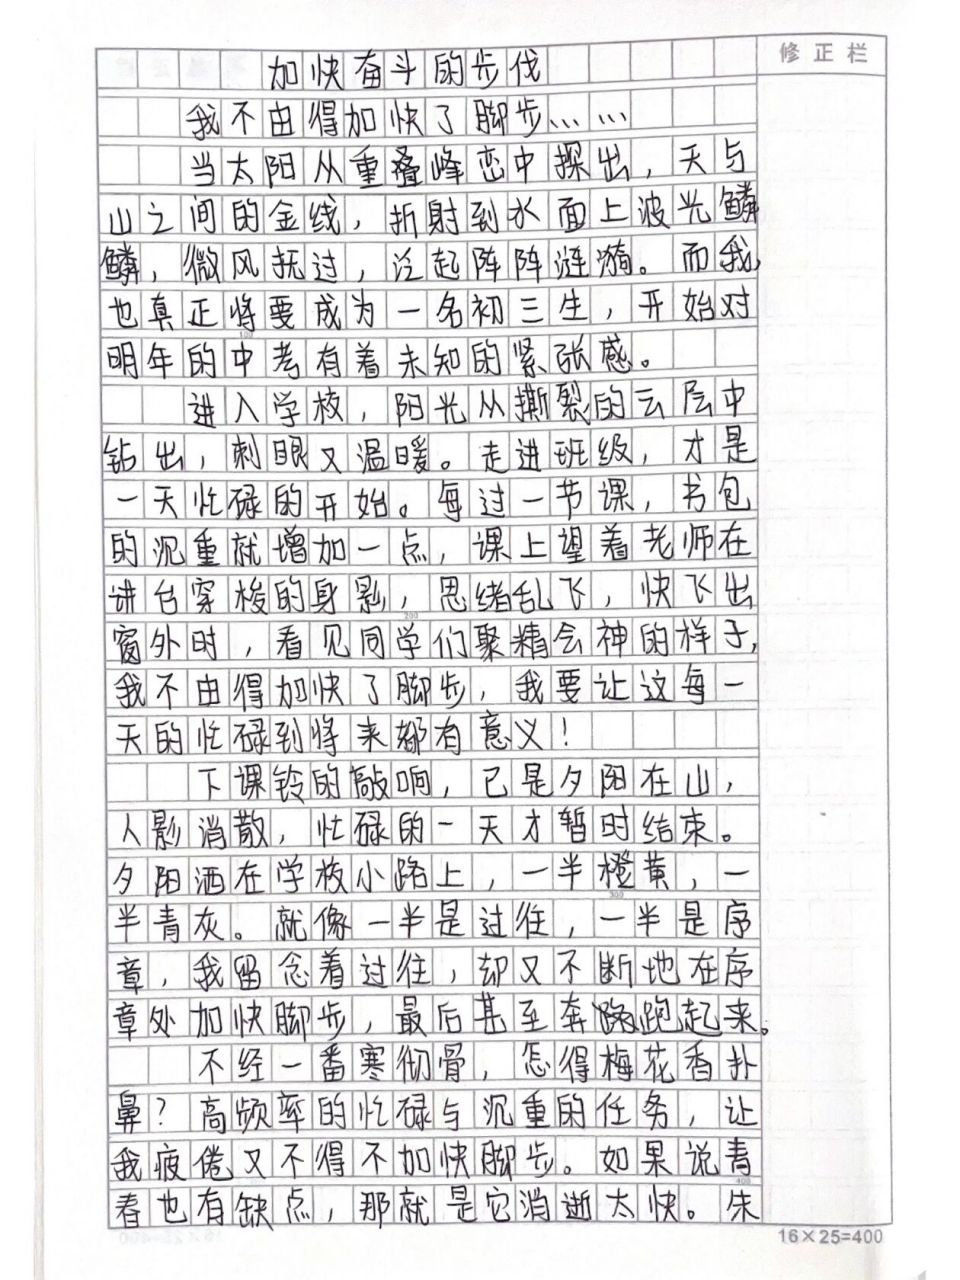 修正栏
加快奋斗的步伐
我不由得加快了脚步……
当太阳从重叠峰峦中探出，天与
山之间的金线，折射到水面上波光鳞
鳞，微风抚过，泛起阵阵涟漪。而我，
也真正将要成为一名初三生，开始对
明年的中考有着未知的紧张感。
进入学校，阳光从撕裂的云层中
钻出，刺眼又温暖。走进班级，才是
一天忙碌的开始。每过一节课，书包
的沉重就增加一点，课上望着老师在
讲台穿梭的身影，思绪乱飞，快飞出
窗外时，看见同学们聚精会神的样子，
我不由得加快了脚步，我要让这每一
天的忙碌到将来都有意义！
下课铃的敲响，已是夕阳在山，
人影消散，忙碌的一天才暂时结束。
夕阳洒在学校小路上，一半橙黄，一
半青灰。就像一半是过往，一半是序
章，我留念着过往，却又不断地在序
章处加快脚步，最后甚至奔跑起来。
不经一番寒彻骨，怎得梅花香扑
鼻？高频率的忙碌与沉重的任务，让
我疲倦又不得不加快脚步。如果说青
春也有缺点，那就是它消逝太快。朱
16×25=400